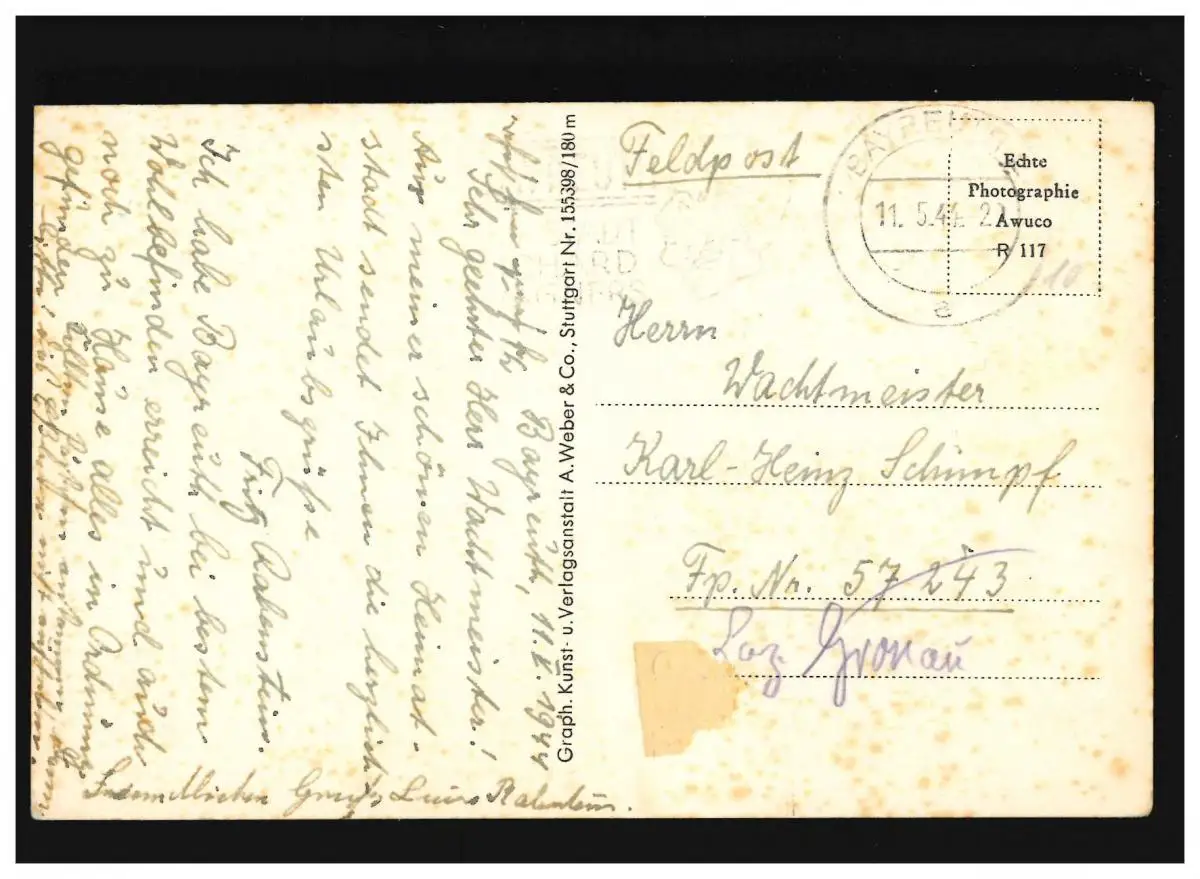 Feldpost
BAYREUTH
11. 5.44. 2
e
Echte
Photographie
Awuco
R 117
STADT
RICHARD
WAGNERS
Herrn
Wachtmeister
Karl-Heinz Schimpf
Fp. Nr. 57 243
Laz. Gronau
Graph. Kunst- u. Verlagsanstalt A. Weber & Co., Stuttgart Nr. 155398/180 m
Bayreuth, 11.V.1944
Sehr geehrter Herr Wachtmeister!
Aus meiner schönen Heimat-
stadt sendet Ihnen die herzlich-
sten Urlaubsgrüsse
Fritz Rabenstein.
Ich habe Bayreuth bei bestem
Wohlbefinden erreicht und auch
noch zu Hause alles in Ordnung
gefunden.
Gruß